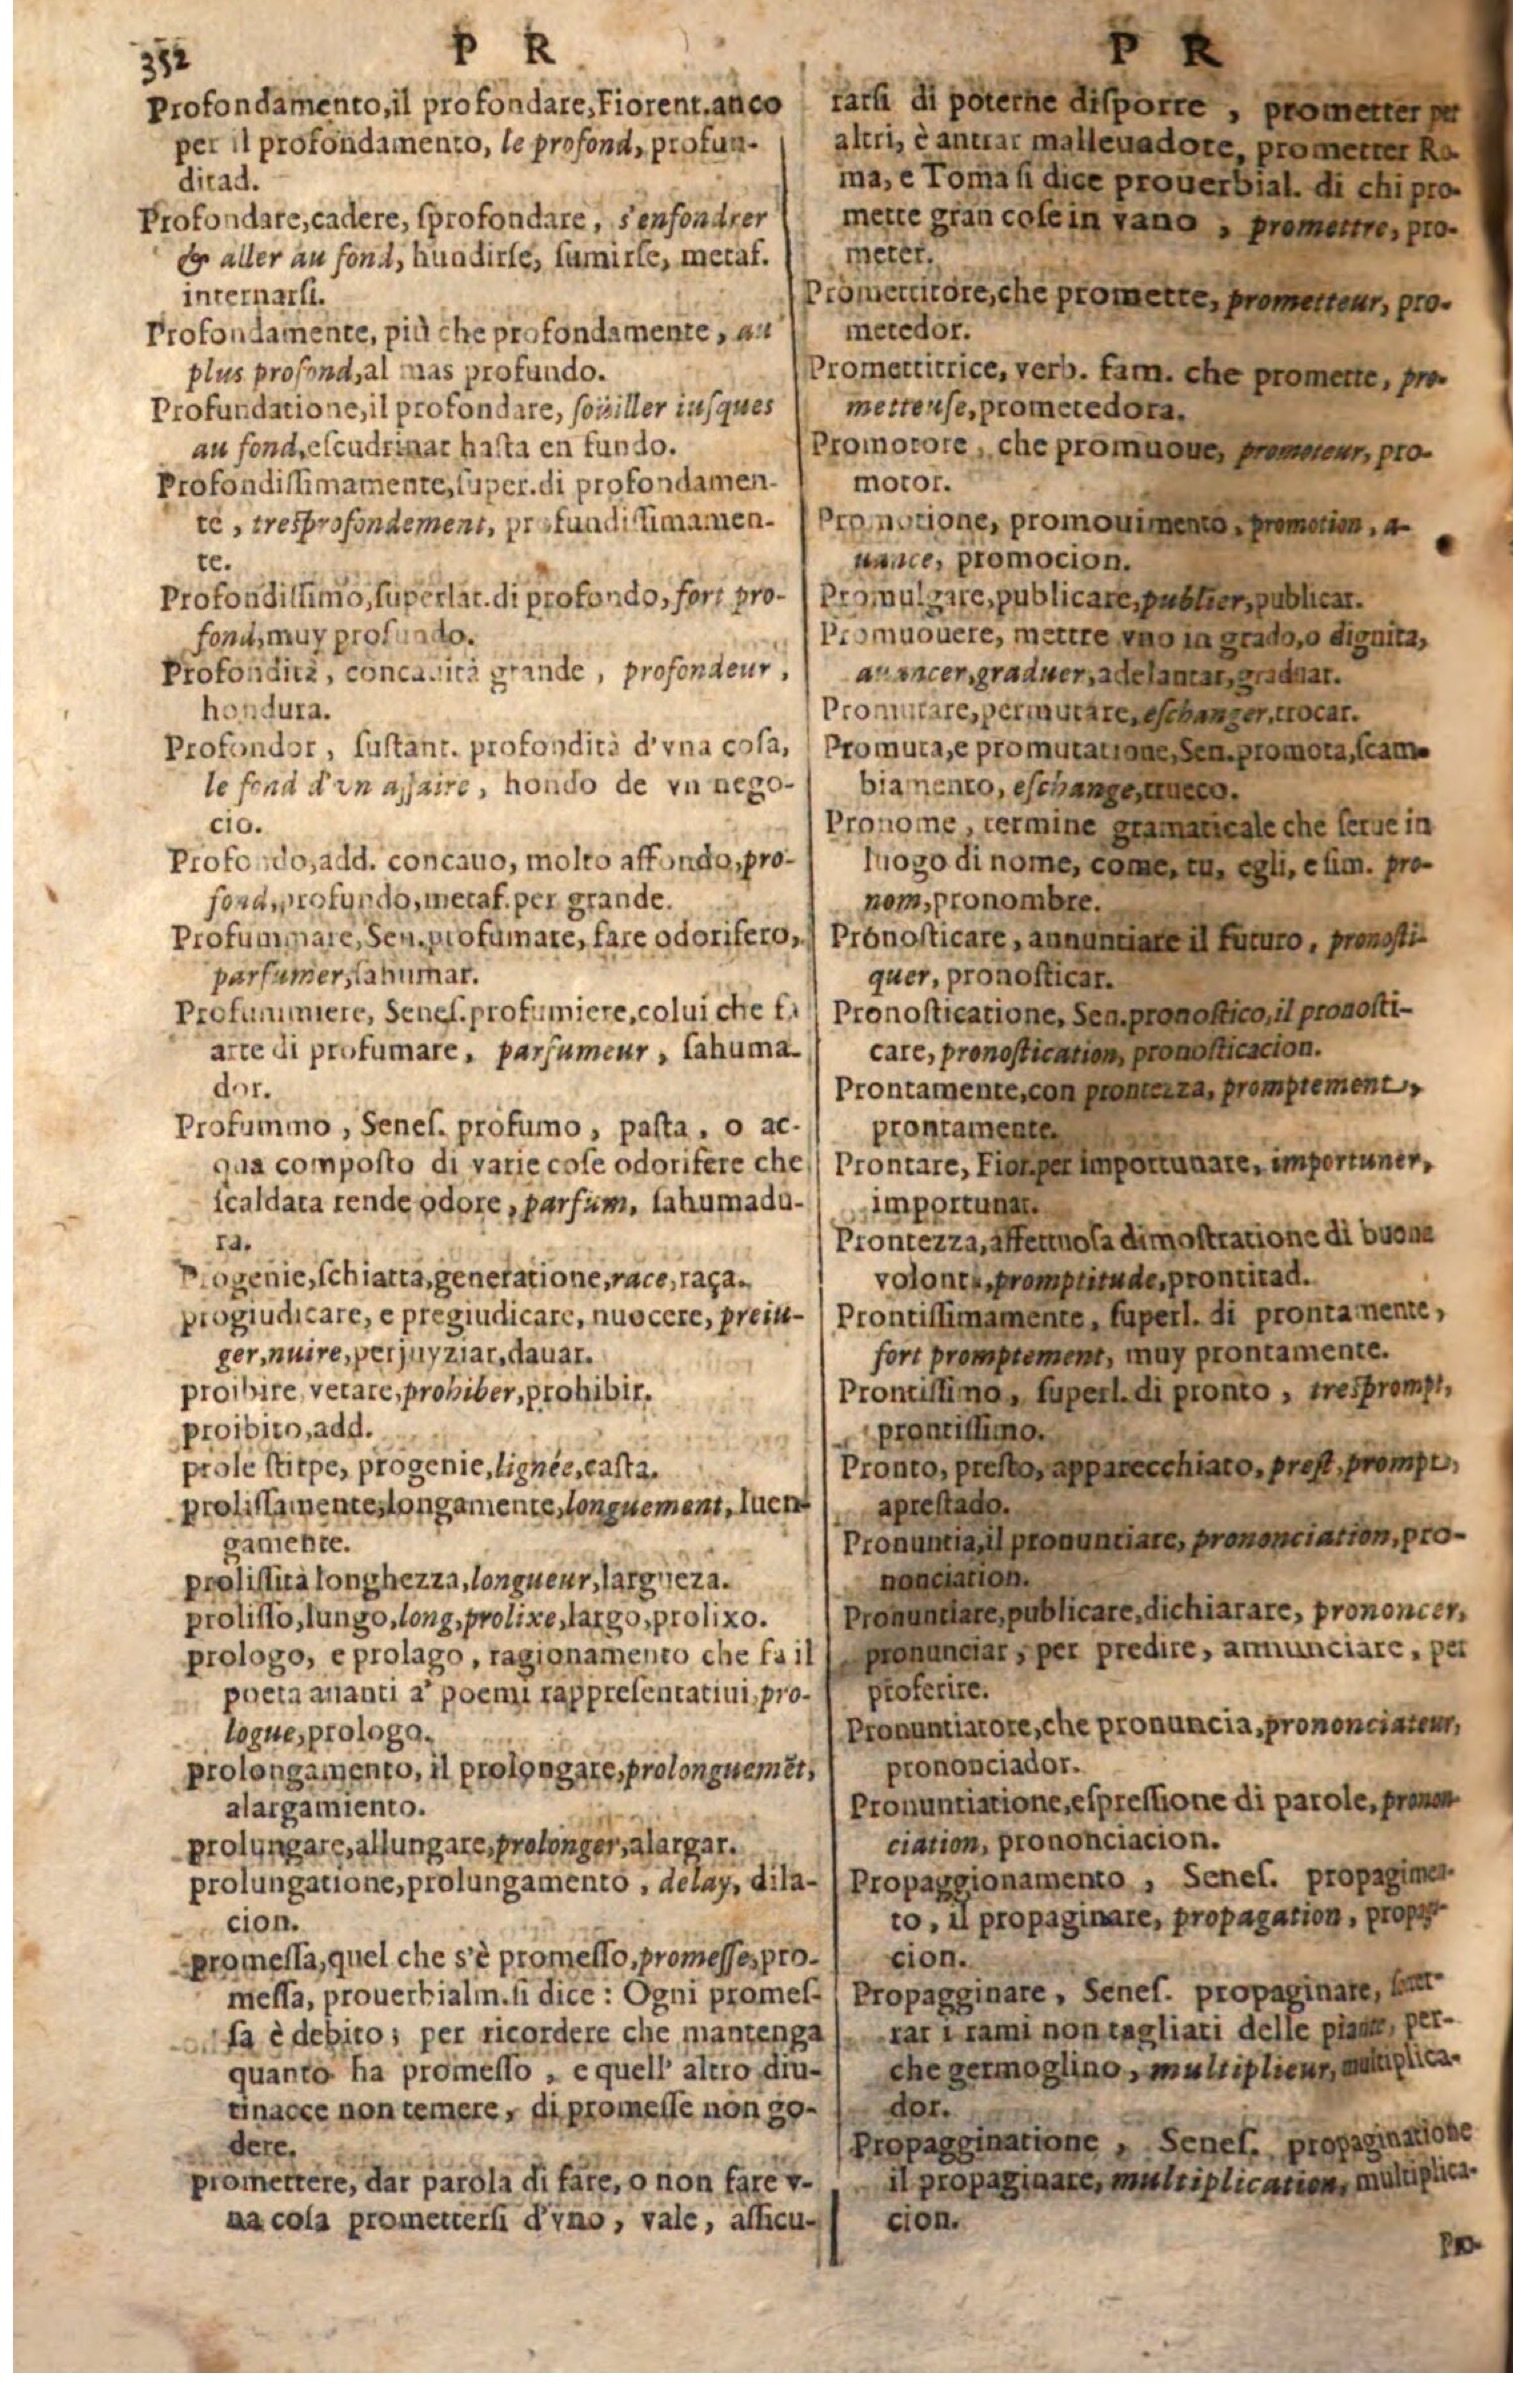 352
P R
Profondamento,il profondare,Fiorent.anco
per il profondamento, le profond, profun-
ditad.
Profondare,cadere, ſprofondare, s'enfondrer
& aller au fond, hundirſe, ſumirſe, metaf.
internarſi.
Profondamente, più che profondamente, au
plus profond,al mas profundo.
Profundatione,il profondare, ſoüiller iuſques
au fond,eſcudrinar haſta en fundo.
Profondiſſimamente,ſuper.di profondamen-
te, treſprofondement, profundiſſimamen-
te.
Profondiſſimo,ſuperlat.di profondo,fort pro-
fond,muy profundo.
Profondità, concauità grande, profondeur,
hondura.
Profondor, ſuſtant. profondità d'vna coſa,
le fond d'vn affaire, hondo de vn nego-
cio.
Profondo,add. concauo, molto affondo,pro-
fond,profundo,metaf.per grande.
Profummare, Sen.profumare, fare odorifero,
parfumer,ſahumar.
Profummiere, Seneſ.profumiere,colui che fa
arte di profumare, parfumeur, ſahuma-
dor.
Profummo, Seneſ. profumo, paſta, o ac-
qua compoſto di varie coſe odorifere che
ſcaldata rende odore, parfum, ſahumadu-
ra.
Progenie,ſchiatta,generatione,race,raça.
progiudicare, e pregiudicare, nuocere, preiu-
ger,nuire,perjuyziar,dauar.
proibire vetare,prohiber,prohibir.
proibito,add.
prole ſtirpe, progenie,lignée,caſta.
proliſſamente,longamente,longuement, luen-
gamente.
proliſſità longhezza,longueur,largueza.
proliſſo,lungo,long,prolixe,largo,prolixo.
prologo, e prolago, ragionamento che fa il
poeta auanti a' poemi rappreſentatiui,pro-
logue,prologo.
prolongamento, il prolongare,prolonguemẽt,
alargamiento.
prolungare,allungare,prolonger,alargar.
prolungatione,prolungamento, delay, dila-
cion.
promeſſa,quel che s'è promeſſo,promeſſe,pro-
meſſa, prouerbialm.ſi dice: Ogni promeſ-
ſa è debito; per ricordere che mantenga
quanto ha promeſſo, e quell' altro diu-
tinacce non temere, di promeſſe non go-
dere.
promettere, dar parola di fare, o non fare v-
na coſa prometterſi d'vno, vale, aſſicu-
P R
rarſi di poterne diſporre, prometter per
altri, è antrar malleuadore, prometter Ro-
ma, e Toma ſi dice prouerbial. di chi pro-
mette gran coſe in vano, promettre, pro-
meter.
Promettitore,che promette, prometteur, pro-
metedor.
Promettitrice, verb. fam. che promette, pro-
metteuſe,prometedora.
Promotore, che promuoue, promoteur, pro-
motor.
Promotione, promouimento, promotion, a-
uance, promocion.
Promulgare,publicare,publier,publicar.
Promuouere, mettre vno in grado,o dignita,
auancer,graduer,adelantar,graduar.
Promutare,permutare,eſchanger,trocar.
Promuta,e promutatione,Sen.promota,ſcam-
biamento, eſchange,trueco.
Pronome, termine gramaticale che ſerue in
luogo di nome, come, tu, egli, e ſim. pro-
nom,pronombre.
Pronoſticare, annuntiare il futuro, pronoſti-
quer, pronoſticar.
Pronoſticatione, Sen.pronoſtico,il pronoſti-
care, pronoſtication, pronoſticacion.
Prontamente,con prontezza, promptement,
prontamente.
Prontare, Fior.per importunare, importuner,
importunar.
Prontezza,affettuoſa dimoſtratione di buona
volontà,promptitude,prontitad.
Prontiſſimamente, ſuperl. di prontamente,
fort promptement, muy prontamente.
Prontiſſimo, ſuperl.di pronto, treſprompt,
prontiſſimo.
Pronto, preſto, apparecchiato, preſt,prompt,
apreſtado.
Pronuntia,il pronuntiare, prononciation,pro-
nonciation.
Pronuntiare,publicare,dichiarare, prononcer,
pronunciar, per predire, annunciare, per
proferire.
Pronuntiatore,che pronuncia,prononciateur,
prononciador.
Pronuntiatione,eſpreſſione di parole, pronon-
ciation, prononciacion.
Propaggionamento, Seneſ. propagimen-
to, il propaginare, propagation, propaga-
cion.
Propagginare, Seneſ. propaginare, ſoter-
rar i rami non tagliati delle piante, per-
che germoglino, multiplieur, multiplica-
dor.
Propagginatione, Seneſ. propaginatione
il propaginare, multiplication, multiplica-
cion.
Pro-